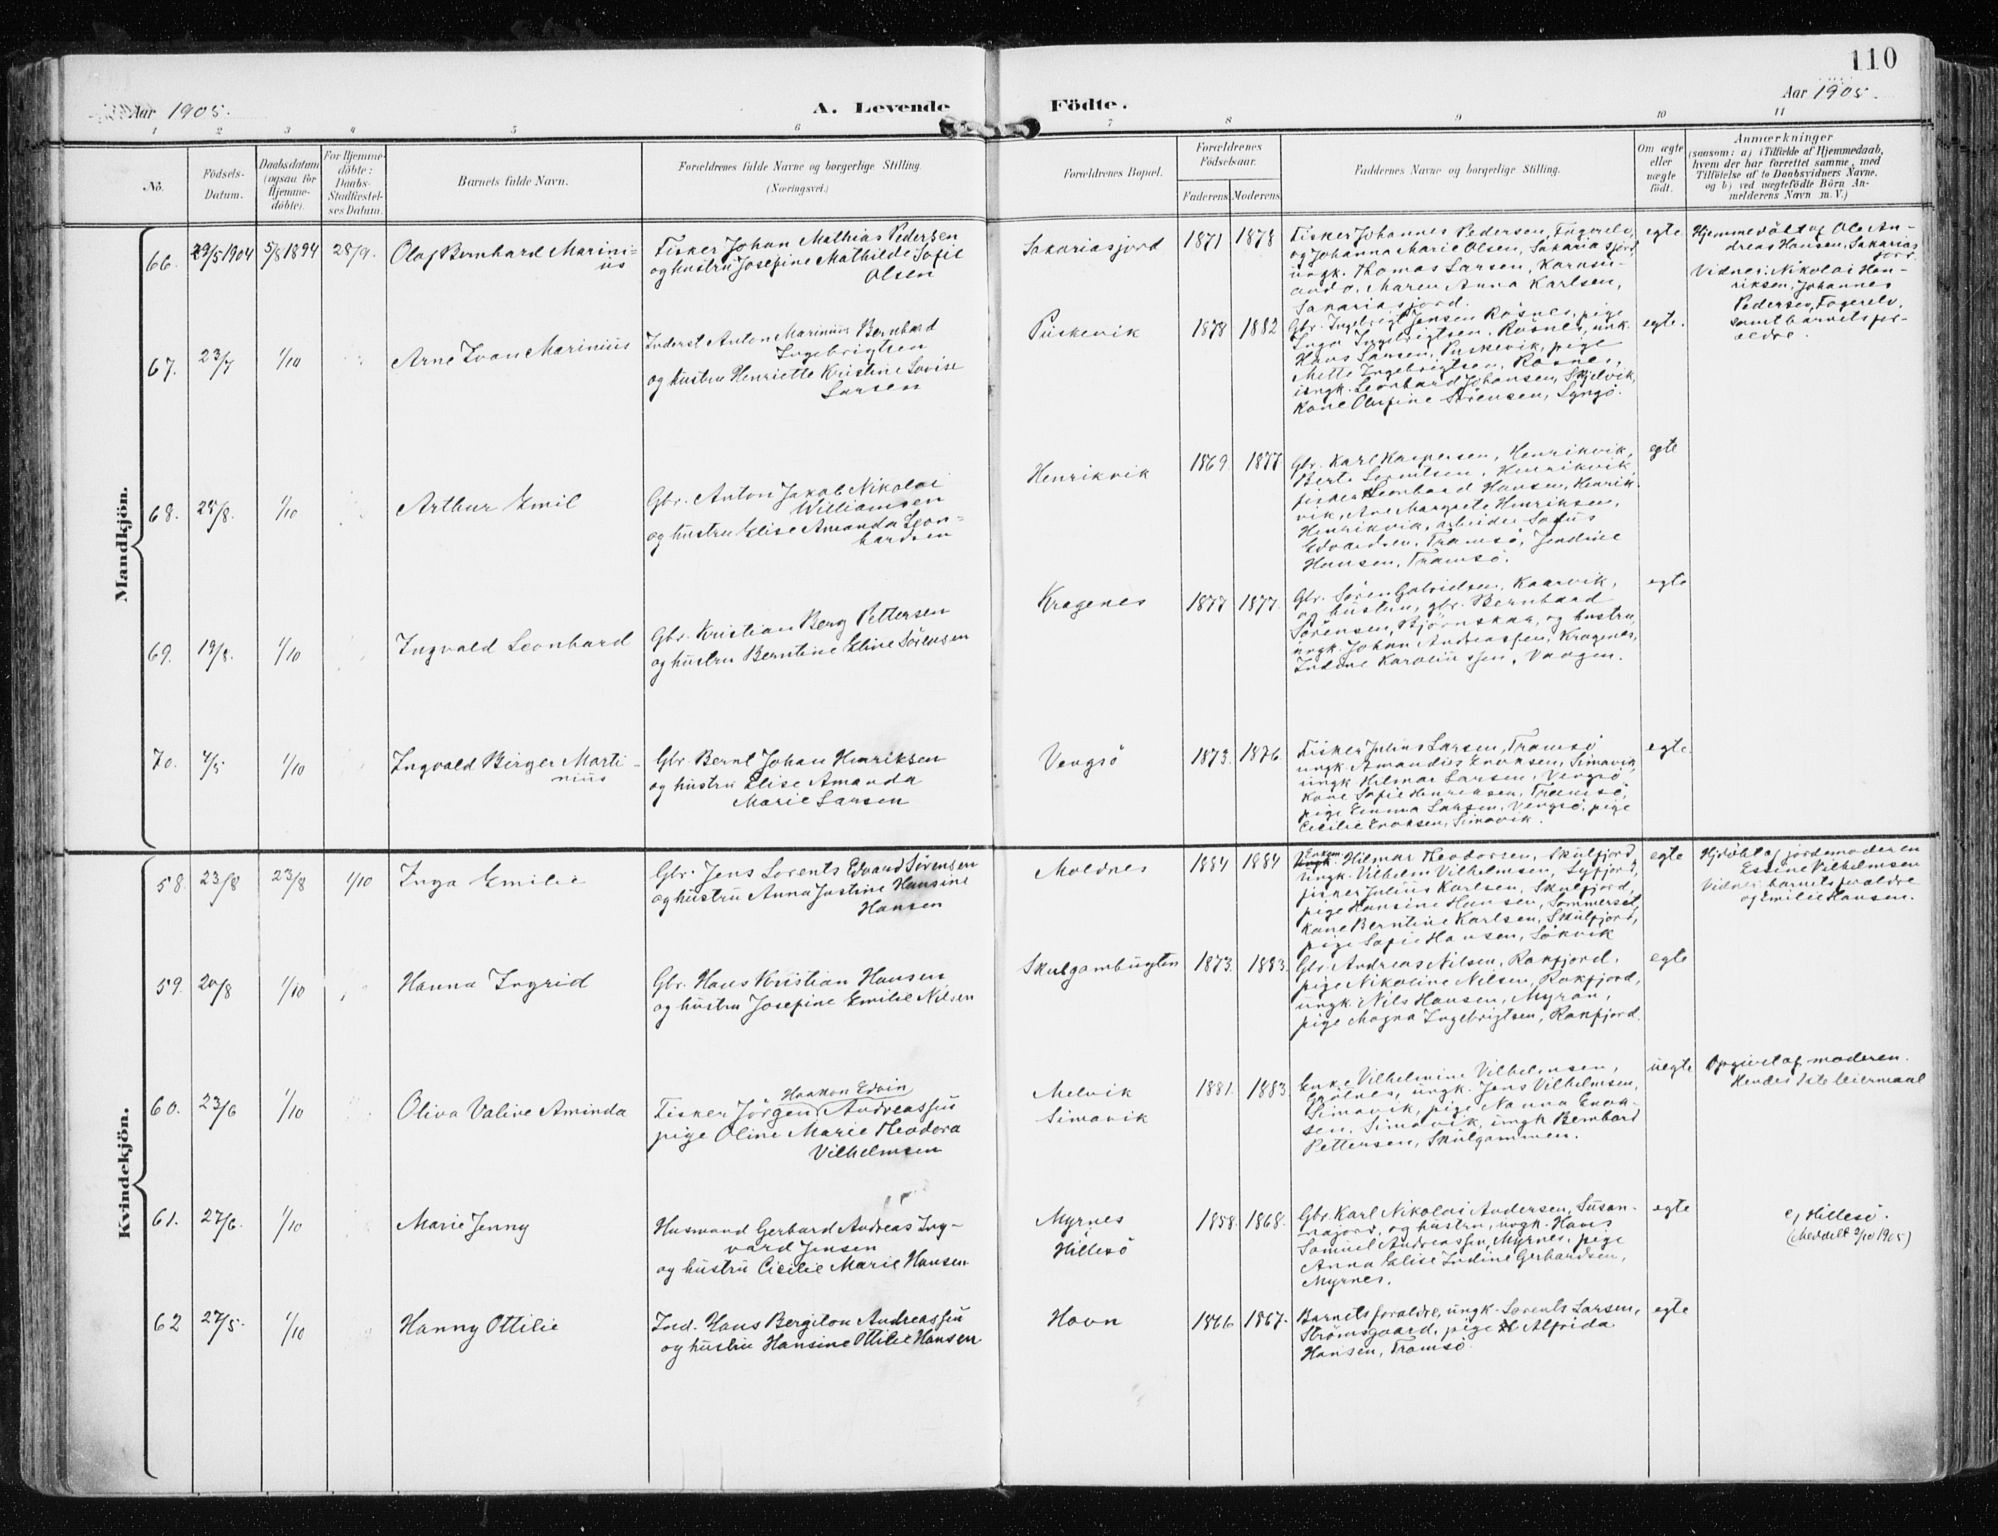 110
Aar 1905.
A. Levende
Födte.
Aar 1905.
1 2 3 4 5 6 7 8 9 10 11
No.
Födsels-
Datum.
Daabsdatum
(ogsaa for
Hjemme-
döbte).
For Hjemme-
döbte:
Daabs-
Stadfæstel-
ses Datum.
Barnets fulde Navn.
Forældrenes fulde Navne og borgerlige Stilling.
(Næringsvei.)
Forældrenes Bopæl.
Forældrenes
Födselsaar.
Faderens Moderens
Faddernes Navne og borgerlige Stilling.
Om ægte
eller
uægte
födt.
Anmærkninger
(saasom: a) i Tilfælde af Hjemmedaab,
hvem der har forrettet samme, med
Tilföielse af to Daabsvidners Navne,
og b) ved uægtefödte Börn An-
melderens Navn m. V.)
Mandkjön.
66. 29/5 1904 5/8 1894 28/9. Olaf Bernhard Marini-
us
Fisker Johan Mathias Pedersen
og hustru Josefine Mathilde Sofie
Olsen
Sakariasjord 1871 1878
Fisker Johannes Pedersen, Fagerelv,
og Johanna Marie Olsen, Sakariasjord,
ungk. Thomas Larsen,
Maren Anna Karlsen,
Sakariasjord.
egte
Hjemmedöbt af Ole An-
dreas Hansen, Sakarias
jord.
Vidner: Nikolai Hen-
riksen, Johannes
Pedersen, Fagerelv,
samt barnets for-
ældre.
67. 23/7 1/10 Arne Ivan Marinius
Inderst Anton Marinius Bernhard
Ingebrigtsen
og hustru Henriette Kristine Lovise
Larsen
Püskevik 1878 1882
Gbr. Ingebrigt Jensen Rösnes, pige
Inga Ingebrigtsen, Rösnes, unk.
Hans Larsen, Puskevik, pige
Mette Ingebrigtsen, Rösnes,
ungk. Leonhard Johansen, Skjelvik,
kone Olufine Sörensen, Lyngö.
egte.
68. 25/8. 1/10 Arthur Emil
Gbr. Anton Jakob Nikolai
Williamsen
og hustru Elise Amanda Leon-
hardsen
Henrikvik 1869 1877
Gbr. Karl Kaspersen, Henrikvik,
Berte Lorentsen, Henrikvik,
fisker Leonhard Hansen, Henrik-
vik, Ane Margrete Henriksen,
Henrikvik, arbeider Sofus
Edvardsen, Tromsö, Jendine
Hansen, Tromsö.
egte
69. 19/8. 1/10 Ingvald Leonhard
Gbr. Kristian Berg Pettersen
og hustru Berntine Eline Sörensen
Kragenes 1877 1877.
Gbr. Sören Gabrielsen, Kaarvik,
og hustru, gbr. Bernhard
Sörensen, Björnskar, og hustru,
ungk. Johan Andreassen, Kragenes,
Indine Karoliussen, Vaagen.
egte
70. 4/5 1/10 Ingvald Birger Marti-
nius
Gbr. Bernt Johan Henriksen
og hustru Elise Amanda
Marie Larsen
Vengsö 1873. 1876
Fisker Julius Larsen, Tromsö
ungk. Amandus Enoksen, Simavik,
ungk. Hilmar Larsen, Vengsö
kone Sofie Henriksen, Tromsö,
pige Emma Larsen, Vengsö, pige
Cecilie Enoksen, Simavik.
egte
Kvindekjön.
58. 23/8 23/8 1/10 Inga Emilie
Gbr. Jens Lorents Edvard Sörensen
og hustru Anna Jastine Hansine
Hansen
Moldnes 1884 1884
Hilmar Theodorsen, Skulfjord,
ungk. Vilhelm Vilhelmsen,
fisker Julius Karlsen, Skulfjord,
pige Hansine Hansen, Sommerset,
kone Berntine Karlsen, Skulfjord,
pige Sofie Hansen, Sökvik
egte
Hjdöbt af jordmoderen
Essine Vilhelmsen
Vidner: barnets forældre
og Emilie Hansen.
59. 20/8 1/10 Hanna Ingrid
Gbr. Hans Kristian Hansen
og hustru Josefine Emilie Nilsen
Skulgambugten 1873. 1883.
Gbr. Andreas Nilsen, Rakfjord,
pige Nikoline Nilsen, Rakfjord,
ungk. Nils Hansen, Myran,
pige Magna Ingebrigtsen, Rakfjord.
egte
60. 23/6 1/10 Oliva Valine Aminda
Haakon Edvin
Fisker Jörgen Andreassen
pige Oline Marie Theodora
Vilhelmsen
Melvik
Simavik
1881. 1883
Enke Vilhelmine Vilhelmsen,
Grötnes, ungk. Jens Vilhelmsen,
Simavik, pige Nanna Enok-
sen, Simavik, ungk Bernhard
Pettersen, Skulgammen.
uegte
Opgivet af moderen.
Hendes 1ste leiermaal
61. 27/6. 1/10 Marie Jenny
Husmand Gerhard Andreas Ing-
vard Jensen
og hustru Cicilie Marie Hansen
Myrnes
Hillesö
1858. 1868.
Gbr. Karl Nikolai Andersen, Susan-
najord, og hustru, ungk. Hans
Samuel Andreassen, Myrnes, pige
Anna Elise Indine Gerhardsen,
Myrnes.
egte
Hillesö.
(Meddelt 2/10 1905)
62 27/5. 1/10 Hanny Ottilie
Ind. Hans Bergiton Andreassen
og hustru Hansine Ottilie Hansen
Havn 1866 1867.
Barnets forældre, ungk. Lorents Larsen,
Strömsgaard, pige Alfrida
Hansen, Tromsö.
egte